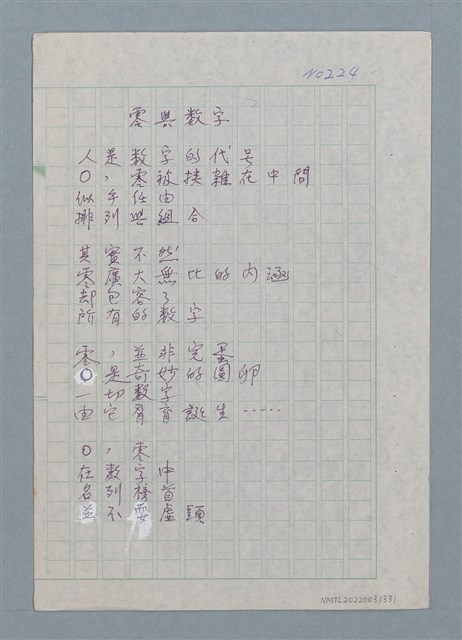 No224
零與数字
人是数字的代号
〇，零被挾雜在中間
似乎任由
排列與組合
其實不然
零廣大無比的内涵
却包容了
所有的数字
零，並非完蛋
〇是奇妙的圓卵
一切数字
由它育誕生……
〇，零
在数字中
名列榜首
並不耍虛頭
NMTL20220031331